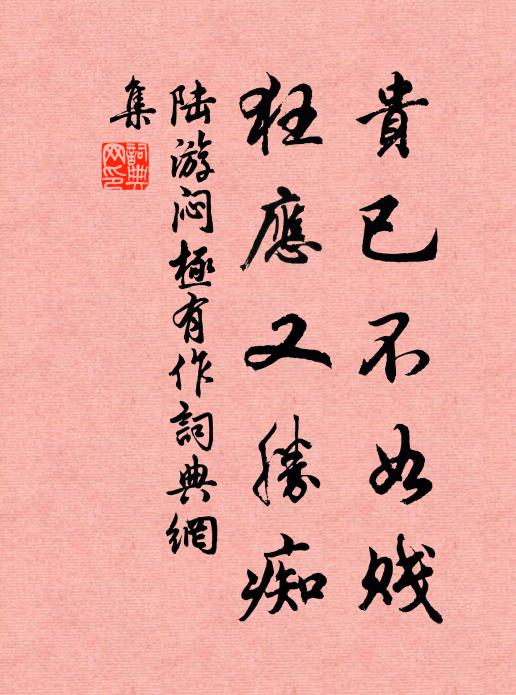 貴已不如賤
狂應又勝痴
陸游闷極有作詞典網
集
詞典网印